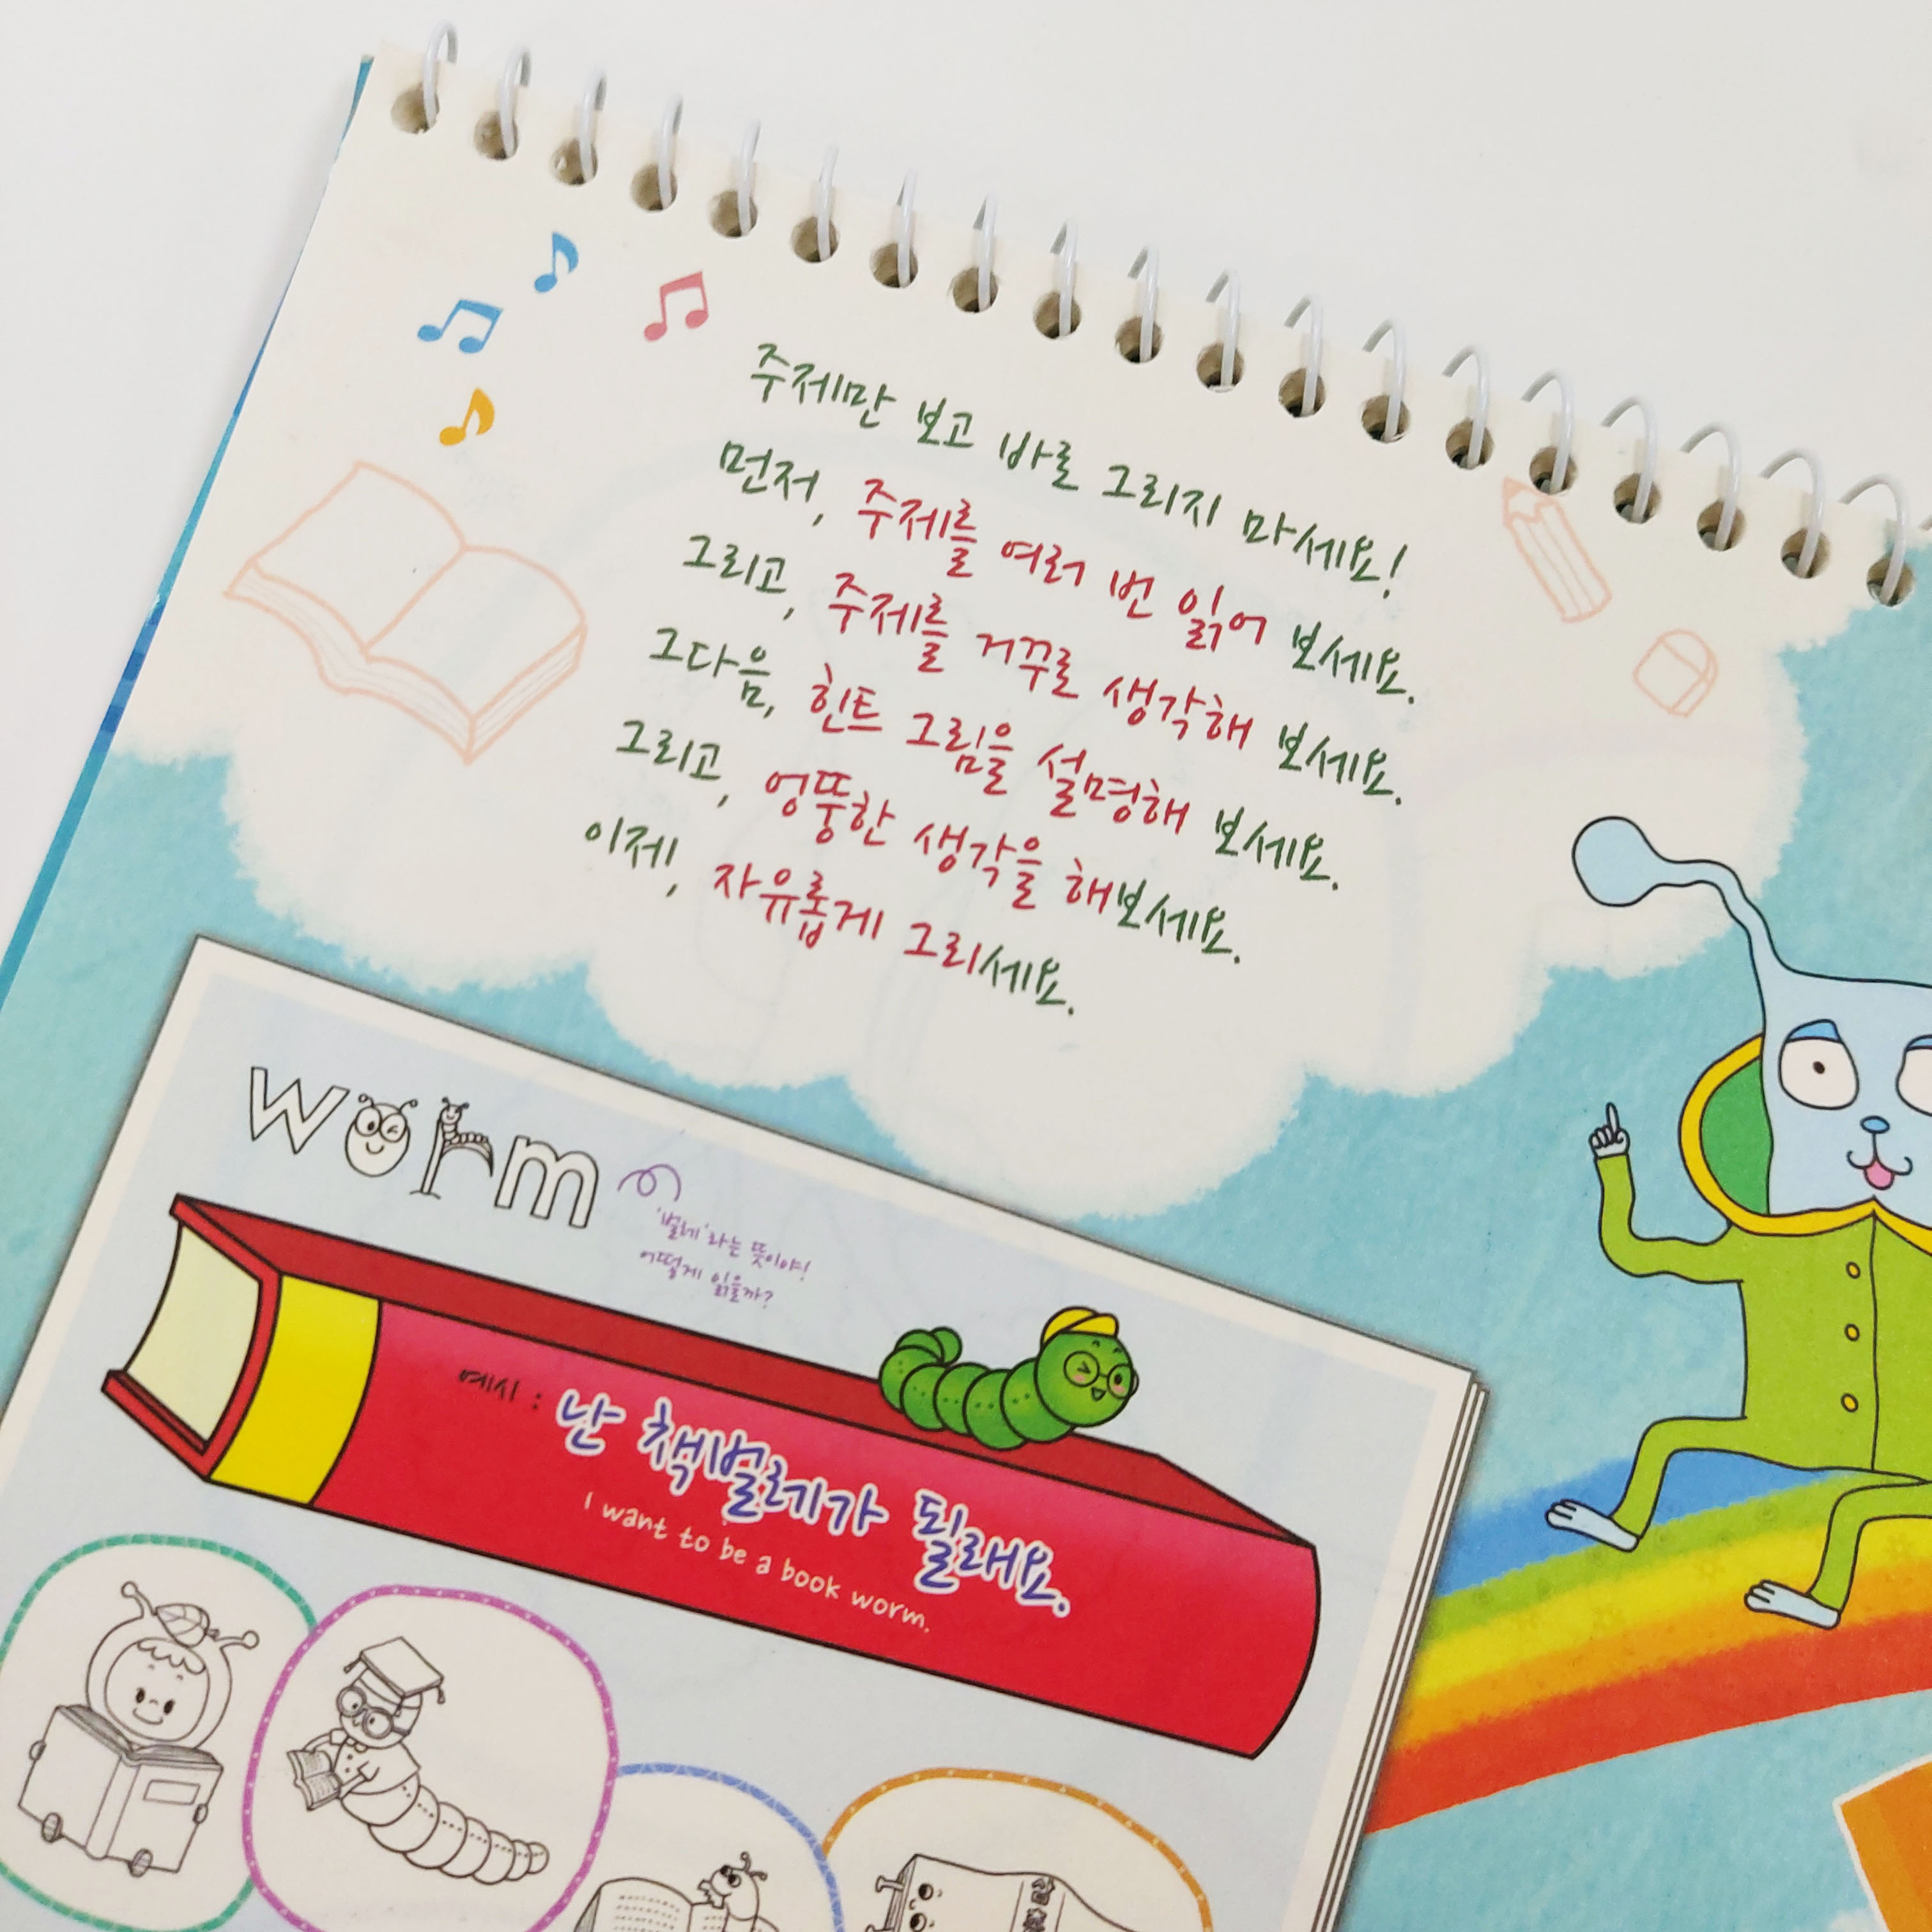 주제만 보고 바로 그리지 마세요!
먼저, 주제를 여러 번 읽어 보세요.
그리고, 주제를 거꾸로 생각해 보세요.
그다음, 힌트 그림을 설명해 보세요.
그리고, 엉뚱한 생각을 해보세요.
이제, 자유롭게 그리세요.
worm
'벌레'라는 뜻이야!
어떻게 읽을까?
예시 : 난 책벌레가 될래요.
I want to be a book worm.